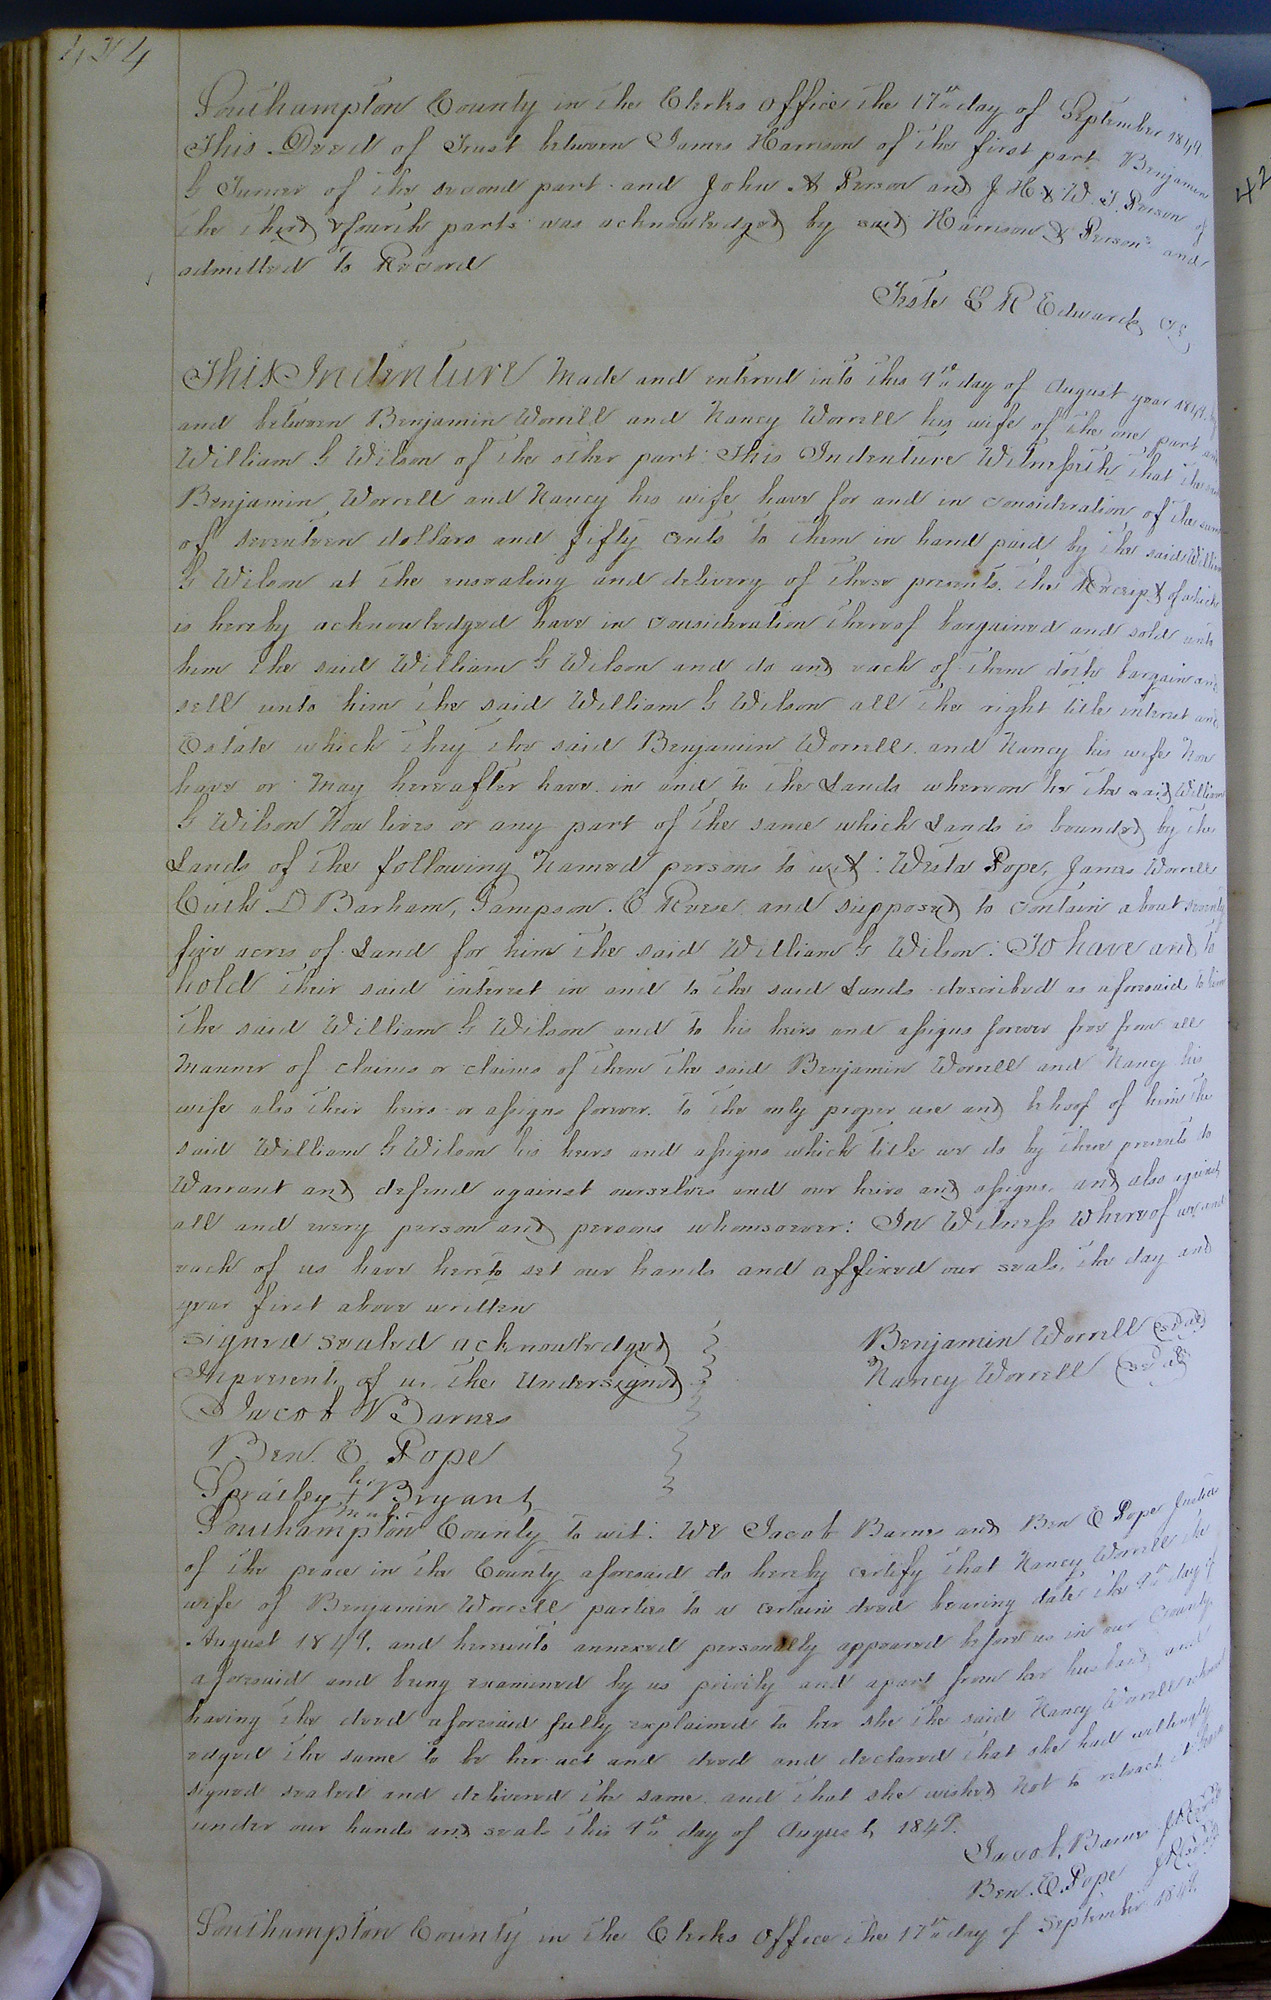 424
Southampton County in the Clerks office the 17th day of September 1849
This Deed of Trust between James Harrison of the first part Benjamin
G Turner of the second part and John A Person and J H & W. T. Person of
the third & fourth parts was acknowledged by said Harrison & Persons and
admitted to Record
Teste L R Edwards CC
This Indenture Made and entered into this 9th day of August year 1849 by
and between Benjamin Worrell and Nancy Worrell his wife of the one part and
William G Wilson of the other part: This Indenture Witnesseth that the said
Benjamin Worrell and Nancy his wife have for and in consideration of the sum
of seventeen dollars and fifty cents to them in hand paid by the said William
G Wilson at the ensealing and delivery of these presents. the Receipt of which
is hereby acknowledged have in consideration thereof bargained and sold unto
him the said William G Wilson and do and each of them doth bargain and
sell unto him the said William G Wilson all the right title interest and
Estate which they the said Benjamin Worrell and Nancy his wife Now
have or May hereafter have in and to the Lands whereon he the said William
G Wilson Now lives or any part of the same which Lands is bounded by the
Lands of the following Named persons to wit: Pope, James Worrell
D Barham, Sampson C Reese and supposed to contain about seventy
five acres of Land for him the said William G Wilson: To have and to
hold their said interest in and to the said Lands described as aforesaid to him
the said William G Wilson and to his heirs and assigns forever free from all
Manner of claims or claims of them the said Benjamin Worrell and Nancy his
wife also their heirs or assigns forever. to the only proper use and behoof of him the
said William G Wilson his heirs and assigns which title we do by these presents do
Warrant and defend against ourselves and our heirs and assigns and also against
all and every person and persons whomsoever: In Witness whereof we and
each of us have hereto set our hands and affixed our seals, the day and
year first above written
signed sealed acknowledged
In presents of us the Undersigned
Benjamin Worrell (seal)
Nancy Worrell (seal)
Jacob Barnes
Ben. E. Pope
his
Spratley + Bryant
mark
Southampton County to wit: We Jacob Barnes and Ben E Pope Justices
of the peace in the County aforesaid do hereby certify that Nancy Worrell the
wife of Benjamin Worrell parties to a certain deed bearing date the 9th day of
August 1849. and hereunto annexed personally appeared before us in our County
aforesaid and being examined by us privily and apart from her husband and
having the deed aforesaid fully explained to her she the said Nancy Worrell acknowl
edged the same to be her act and deed and declared that she had willingly
signed sealed and delivered the same and that she wished Not to retract it Given
under our hands and seals this 9th day of August 1849.
Jacob Barnes J.P. (seal)
Ben. E. Pope J.P. (seal)
Southampton County in the Clerks Office the 17th day of September 1849.
42